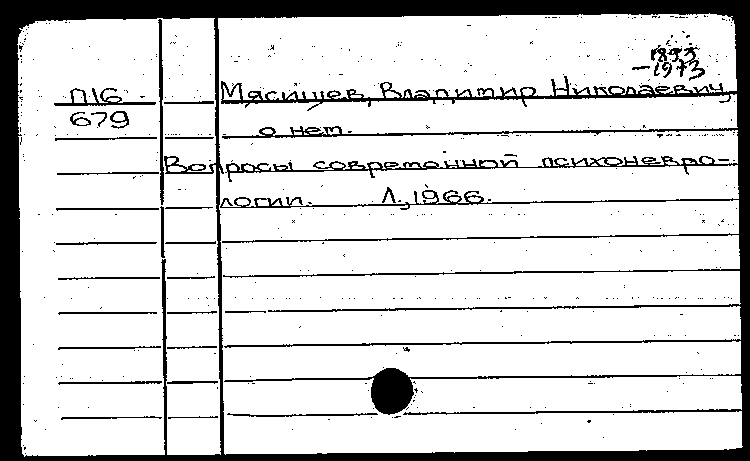 1893
-1973
П16 Мясищев, Владимир Николаевич,
679 о нем.
Вопросы современной психоневро-
логии. Л., 1966.